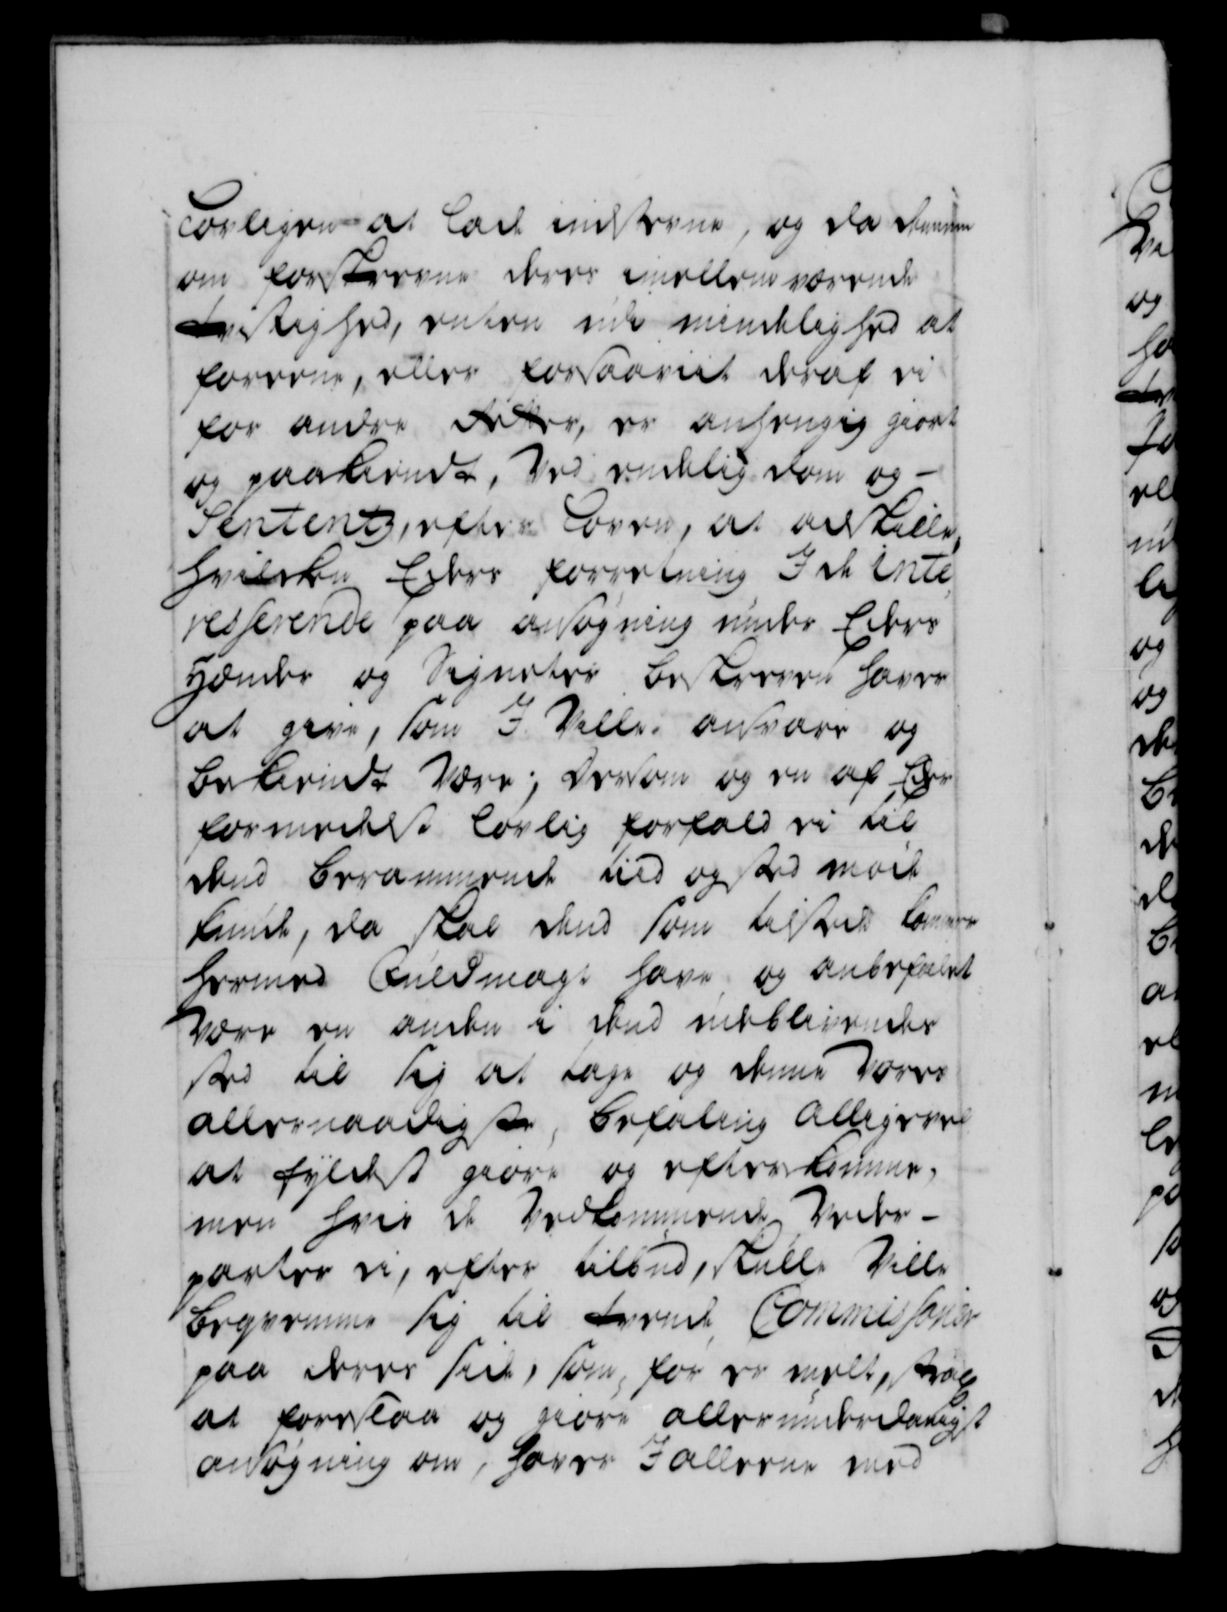 Lovligen at lade indstevne, og da dennem
om forskrevne deres imellem værende
tvistighed, enten udi mindelighed at
foreene, eller forsaavit deraf ei
for andre Retter, er anhengig giort
og paakiendt, Ved endelig dom og -
Sententz, efter Loven, at adskille,
hvilcken Eders forretning I de inte,
resserende paa ansøgning under Eders
Hænder og Signeter beskreven haver
at give, som I Ville ansvare og
bekiendt Være; dersom og en af Eder
formedelst lovlig forfald ei til
dend berammende tiid og sted møde
kunde, da skal dend som tilstede kommer
hermed Fuldmagt have og anbefalet
Være en anden i dend udeblivendes
sted til sig at tage og denne Vores
allernaadigste, befaling alligevel
at fyldest giøre og efterkomme,
men hvis de Vedkommende Veder-
parter ei, efter tilbud, skulle Ville
beqvemme sig til tvende Commissarier
paa deres side, som, før er melt, strax
at foreslaa og giøre allerunderdanigst
ansøgning om, haver I alleene med